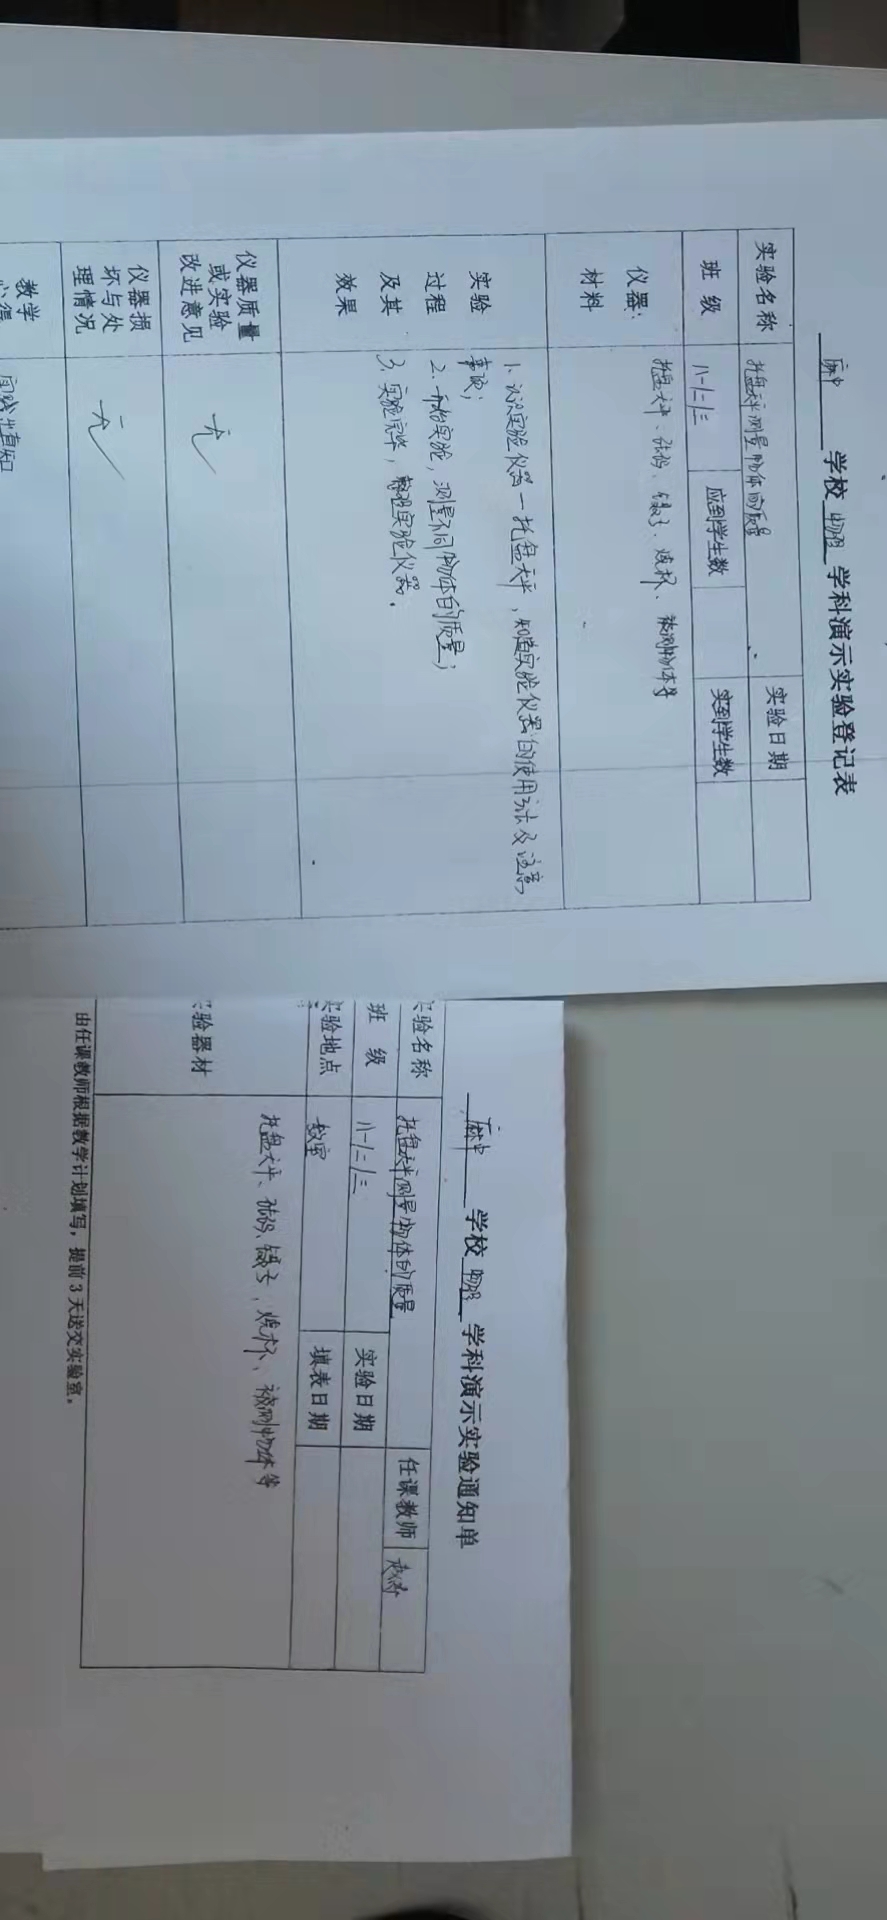 麻中 学校 物理 学科演示实验登记表
实验名称 托盘天平测量物体的质量 实验日期
班 级 八一/二/三 应到学生数 实到学生数
仪器: 材料 托盘天平、砝码、镊子、烧杯、被测物体等
实验过程及其效果
1. 认识实验仪器一托盘天平,知道实验仪器的使用方法及注意
事项;
2. 开始实验,测量不同物体的质量;
3. 实验完毕,整理实验仪器。
仪器质量或实验改进意见 无
仪器损坏与处理情况 无
教学心得 实践出真知
麻中 学校 物理 学科演示实验通知单
实验名称 托盘天平测量物体的质量 任课教师 赵涛
班 级 八一/二/三 实验日期
实验地点 教室 填表日期
实验器材 托盘天平、砝码、镊子、烧杯、被测物体等
由任课教师根据教学计划填写,提前3天送交实验室。